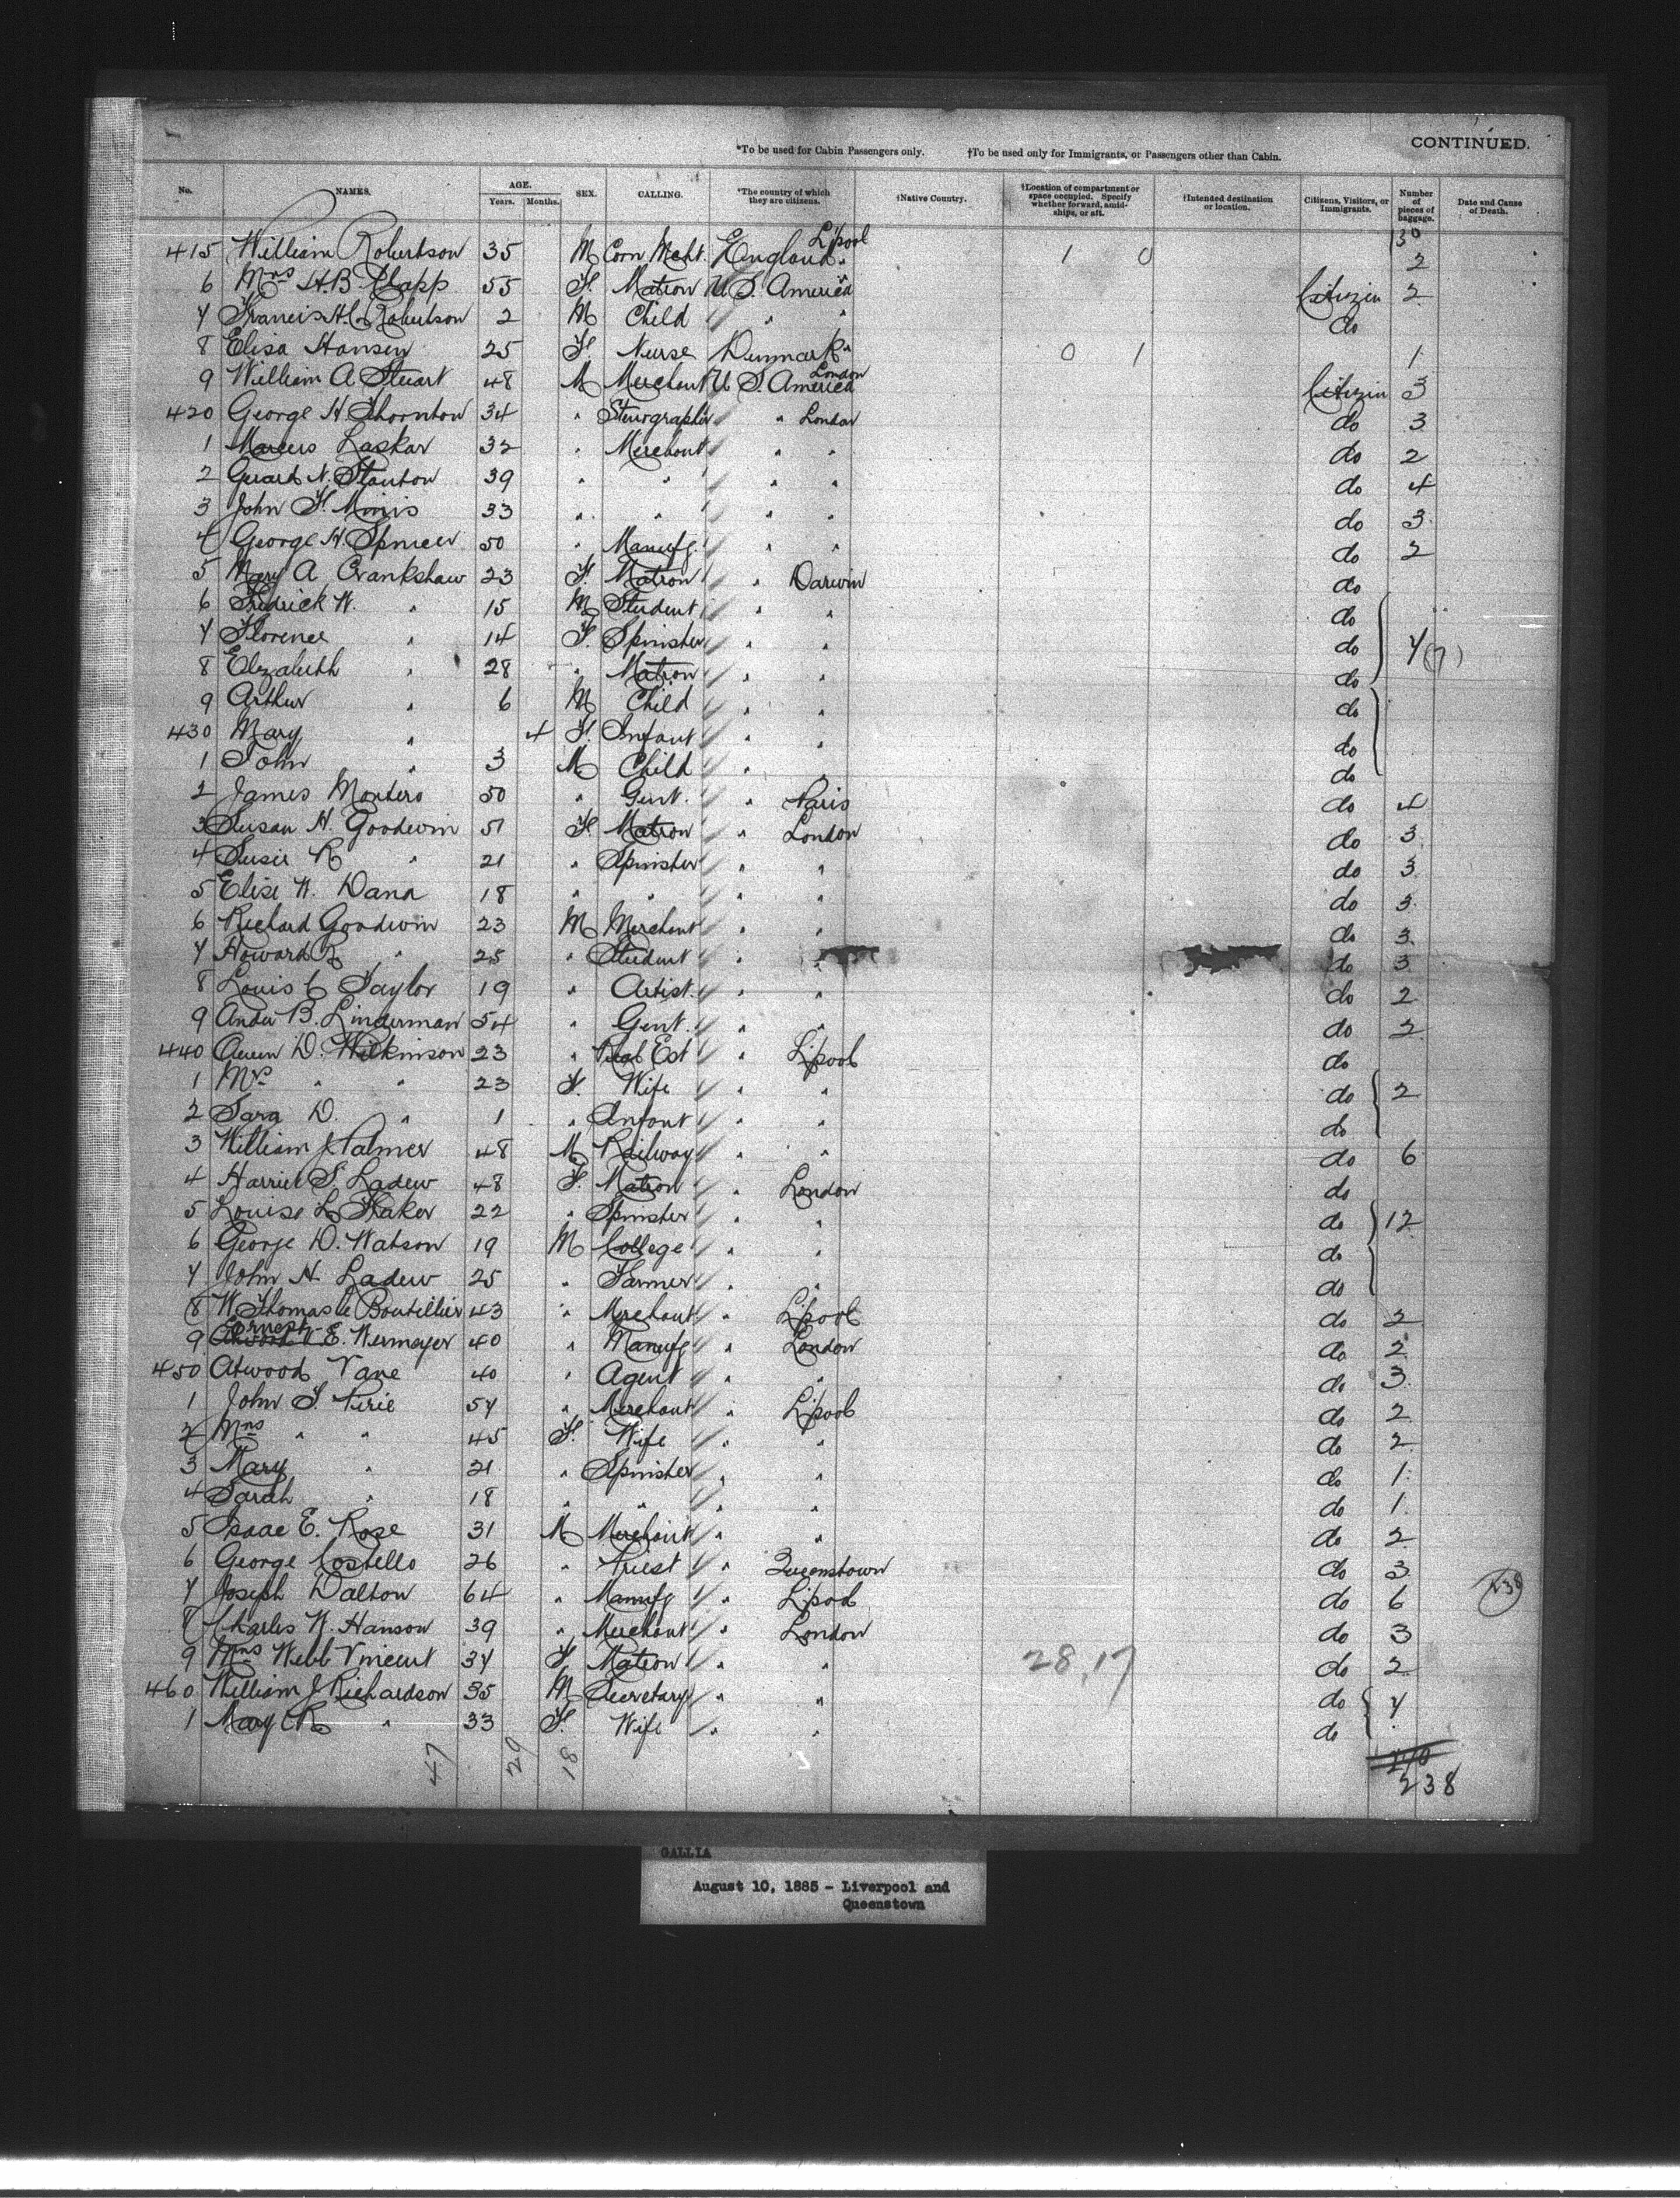 CONTINUED.
*To be used for Cabin Passengers only. †To be used only for Immigrants, or Passengers other than Cabin.
No. NAMES. AGE. Years. Months. SEX. CALLING. *The country of which they are citizens. †Native Country. †Location of compartment or space occupied. Specify whether forward, amidships, or aft. †Intended destination or location. Citizens, Visitors, or Immigrants. Number of pieces of baggage. Date and Cause of Death.
415 William Robertson 35 M Corn Mcht. England L'pool 1 0 2
6 Mrs H.B. Clapp 55 F. Matron U S. America " Citizen 2
7 Francis H. C. Robertson 2 M Child " " do
8 Elisa Hansen 25 F. Nurse Denmark " 0 1 1
9 William A Stuart 48 M Merchant U S. America London Citizen 3
420 George H. Thornton 34 " Stenographer " London do 3
1 Marcus Laskar 32 " Merchant " " do 2
2 N. Stanton 39 " " " " do 4
3 John F. 33 " " " " do 3
4 George H. Spencer 50 " Manufg. " " do 2
5 Mary A. Crankshaw 23 F. Matron " Darwin do
6 Fredrick W. " 15 M Student " " do
7 Florence " 14 F. Spinster " " do 7 (7)
8 Elizabeth " 28 " Matron " " do
9 Arthur " 6 M Child " " do
430 Mary " 4 F. Infant " " do
1 John " 3 M Child " " do
2 James Montero 50 " Gent. " Paris do 4
3 Susan H. Goodwin 51 F. Matron " London do 3
4 Susie R " 21 " Spinster " " do 3
5 Elise W. Dana 18 " " " " do 3
6 Richard Goodwin 23 M Merchant " " do 3
7 Howard R " 25 " Student " " do 3
8 Louis C Taylor 19 " Artist. " " do 2
9 B. Linderman 54 " Gent. " " do 2
440 D. Wilkinson 23 " Real Est " L'pool do
1 Mrs " " 23 F. Wife " " do 2
2 Sara D. " 1 " Infant " " do
3 William J Palmer 48 M Railway " " do 6
4 Harriet S. Ladew 48 F. Matron " London do
5 Louise L. 22 " Spinster " " do 12
6 George D. Watson 19 M College " " do
7 John H. Ladew 25 " Farmer " " do
8 W. Thomas le Boutillier 43 " Merchant " L'pool do 2
9 Ernest E. Wermayer 40 " Manufg " London do 2
450 Atwood Vane 40 " Agent " " do 3
1 John T. Pirie 57 " Merchant " L'pool do 2
2 Mrs " " 45 F. Wife " " do 2
3 Mary " 21 " Spinster " " do 1
4 Sarah " 18 " " " " do 1
5 Isaac E. Rose 31 M Merchant " " do 2
6 George Costello 26 " Priest " Queenstown do 3
7 Joseph Dalton 64 " Manufg " L'pool do 6 238
8 Charles W. Hanson 39 " Merchant " London do 3
9 Mrs Webb Vincent 37 F Matron " " 28,17 do 2
460 William J. Richardson 35 M Secretary " " do 7
1 Mary R " 33 F. Wife " " do
47 29 18
238
GALLIA
August 10, 1885 - Liverpool and
Queenstown